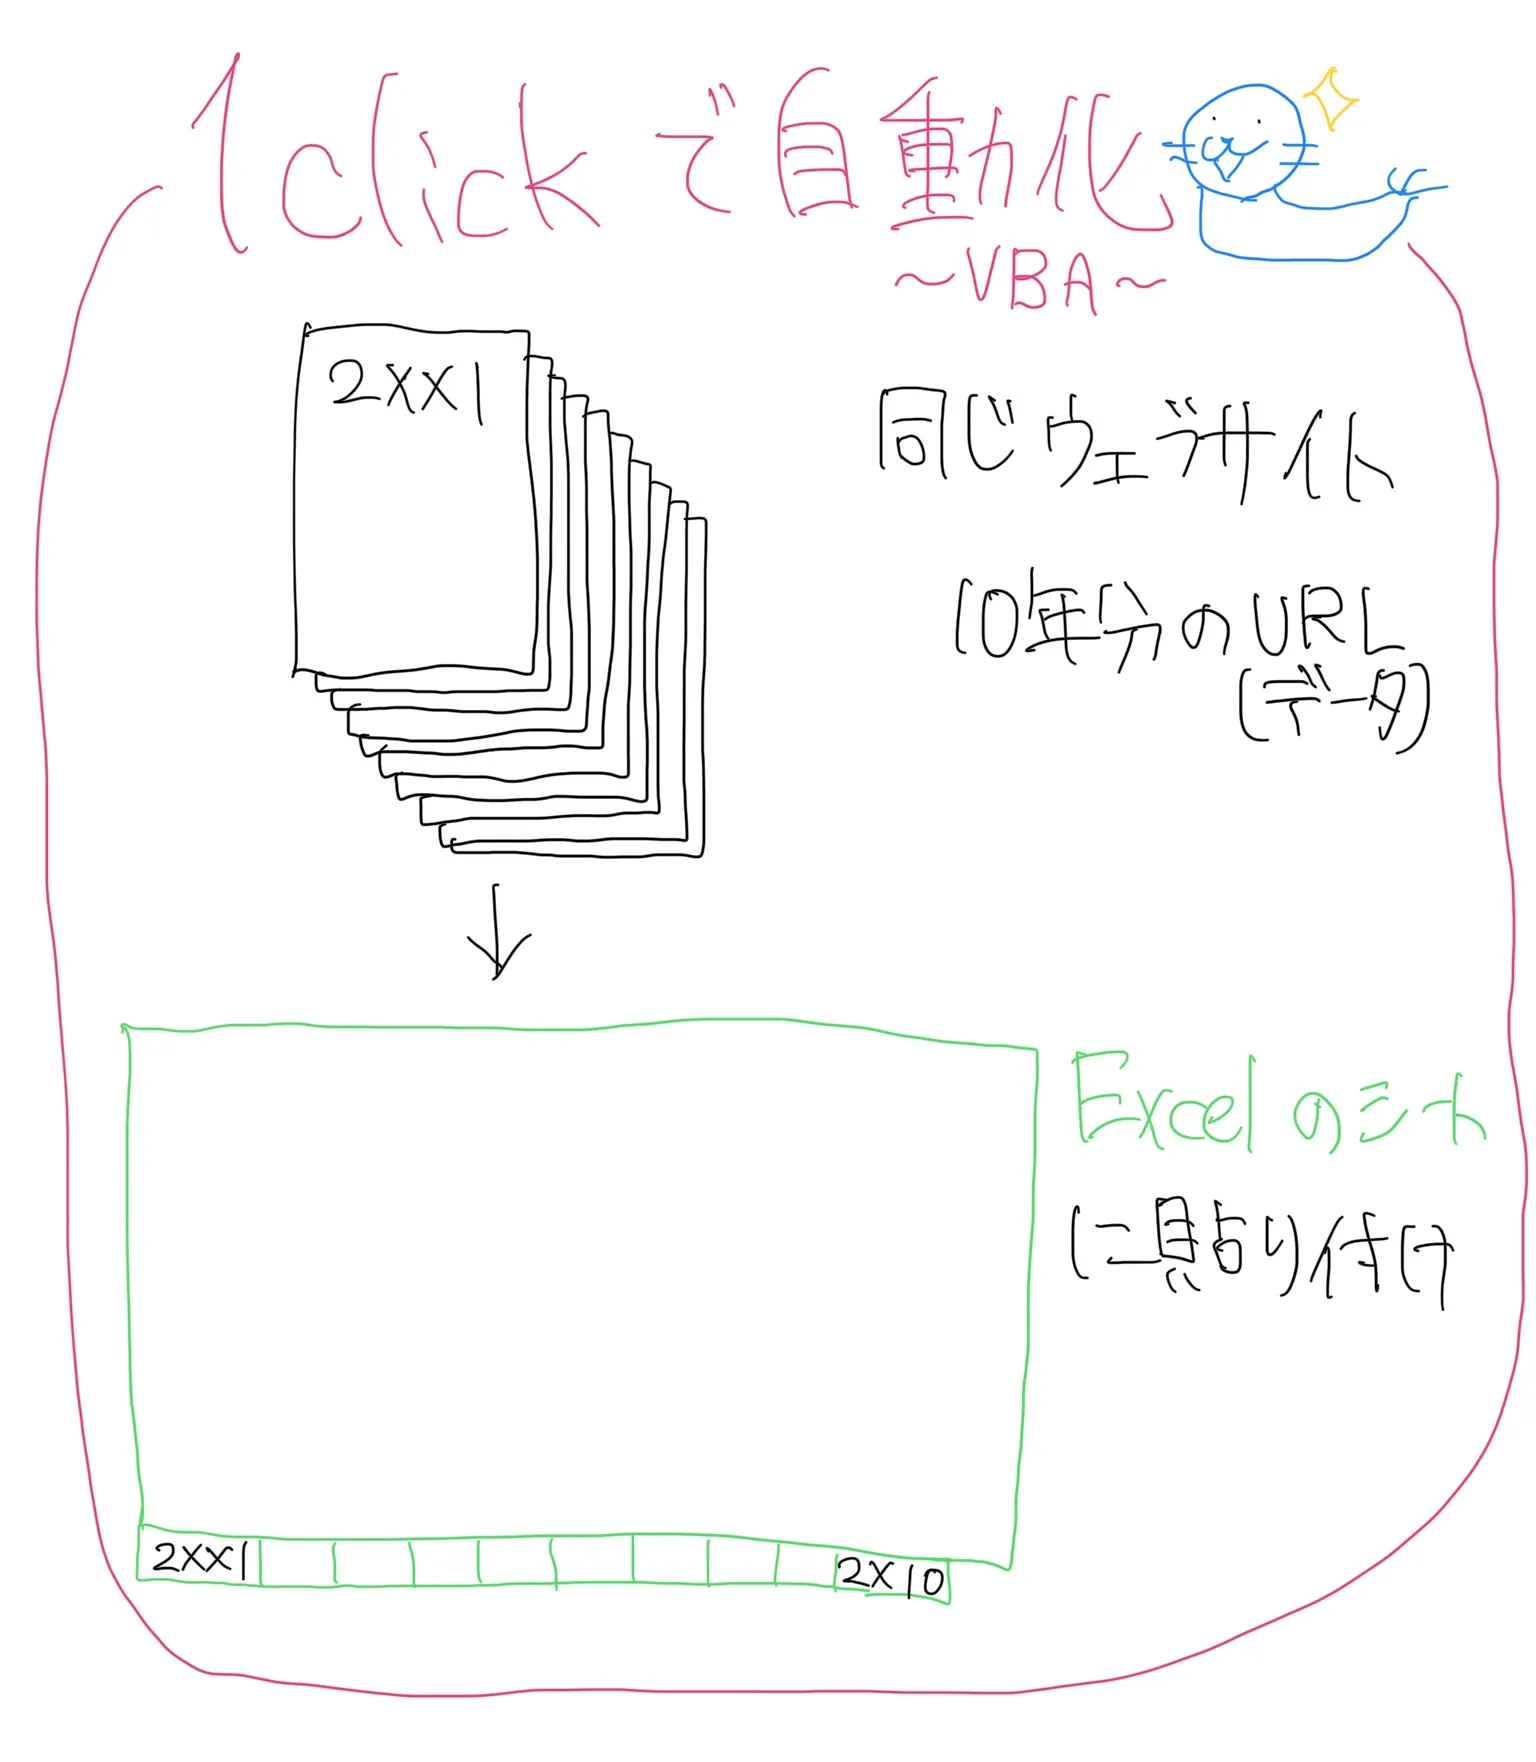 1clickで自動化
～VBA～
2XX1
同じウェブサイト
10年分のURL
(データ)
Excelのシート
に貼り付け
2XX1
2X10